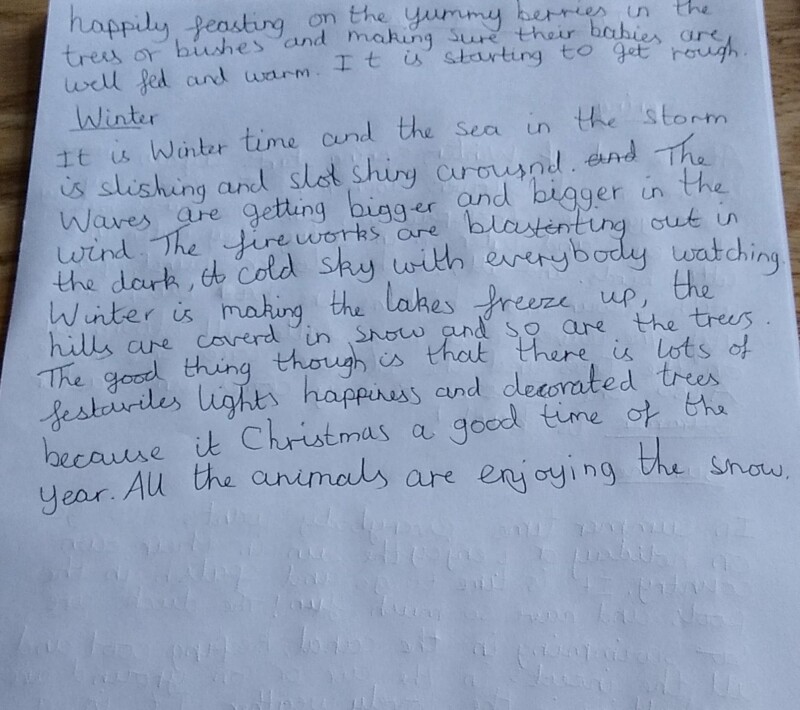 happily feasting on the yummy berries in the
trees or bushes and making sure their babies are
well fed and warm. It is starting to get rough.
Winter
It is Winter time and the sea in the storm
is slishing and slot shing arousnd. and The
Waves are getting bigger and bigger in the
wind. The fireworks are blastenting out in
the dark, cold sky with everybody watching.
Winter is making the lakes freeze up, the
hills are coverd in snow and so are the trees.
The good thing though is that there is lots of
festaviles lights happiness and decorated trees
because it Christmas a good time of the
year. All the animals are enjoying the snow.